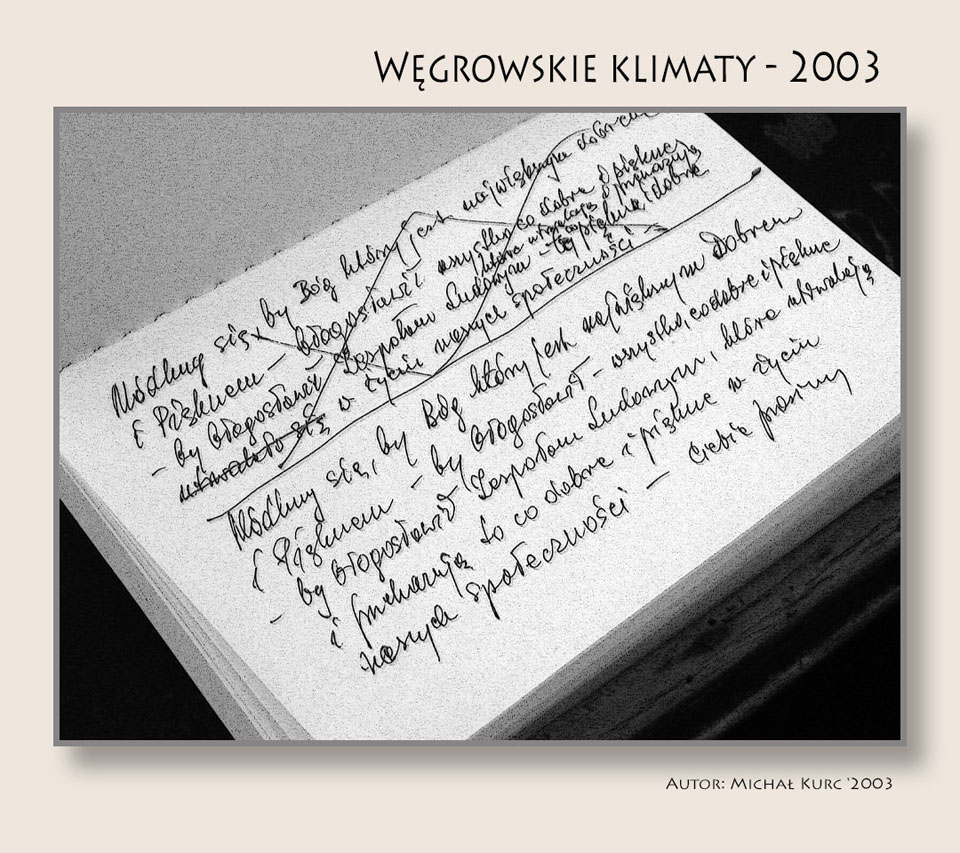 WĘGROWSKIE KLIMATY - 2003
Módlmy się, by Bóg który jest największym dobrem
i Pięknem - błogosławił wszystko co dobre i piękne
- by błogosławił Zespołom Ludowym - to piękne i dobre
utrwalało się w życiu naszych społeczności
Módlmy się, by Bóg który jest największym Dobrem
i Pięknem - by błogosławił - wszystko, co dobre i piękne
- by błogosławił Zespołom Ludowym, które utrwalają
i pokazują to co dobre i piękne w życiu
naszych społeczności - Ciebie prosimy
AUTOR: MICHAŁ KURC '2003